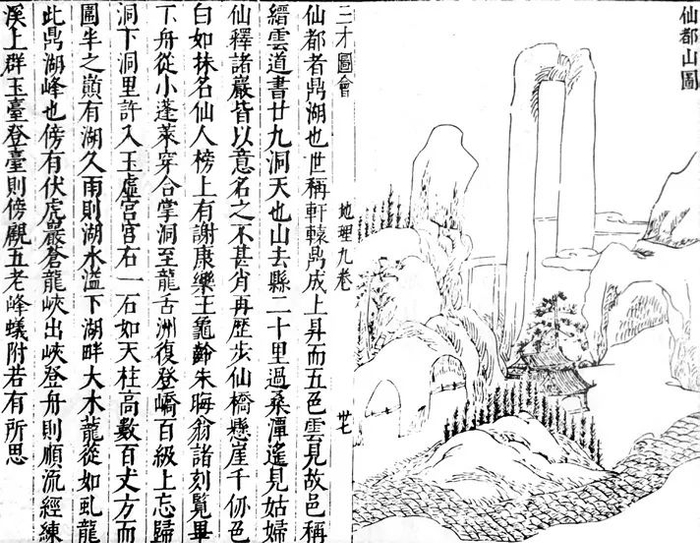 仙都山圖
三才圖會
地理九卷
廿七
仙都者鼎湖也世稱軒轅鼎成上昇而五色雲見故邑稱
縉雲道書廿九洞天也山去縣二十里過桑潭遙見姑婦
仙釋諸巖皆以意名之不甚肖再歷步仙橋懸崖千仞色
白如抹名仙人榜上有謝康樂王龜齡朱晦翁諸刻覽畢
下舟從小蓬萊穿合掌洞至龍舌洲復登嶠百級上忘歸
洞下洞里許入玉虛宮宮右一石如天柱高數百丈方而
圓半之巔有湖久雨則湖水溢下湖畔大木龍從如虬龍
此鼎湖峰也傍有伏虎巖蒼龍峽出峽登舟則順流經練
溪上群玉臺登臺則傍覷五老峰蟻附若有所思